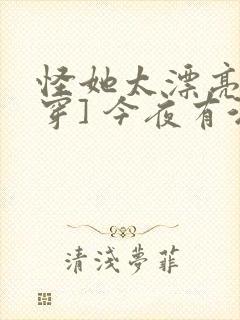 怪她太漂亮
穿] 今夜有
清淺夢菲